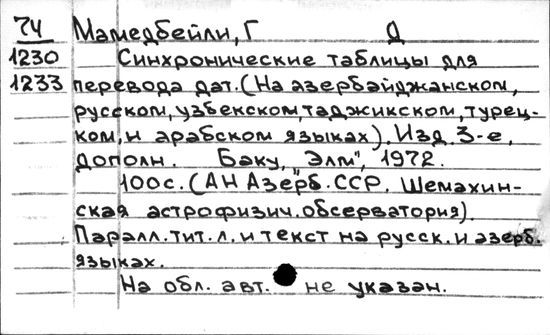 74 Мамедбейли, Г Д
1230 Синхронические таблицы для
1233 перевода дат. (На азербайджанском,
русском, узбекском, таджикском, турец-
ком, и арабском языках). Изд. 3-е,
дополн. Баку, "Элм", 1972.
100с. (АН Азерб. ССР. Шемахин-
ская астрофизич. обсерватория).
Паралл. тит. л. и текст на русск. и азерб.
языках.
На обл. авт. не указан.